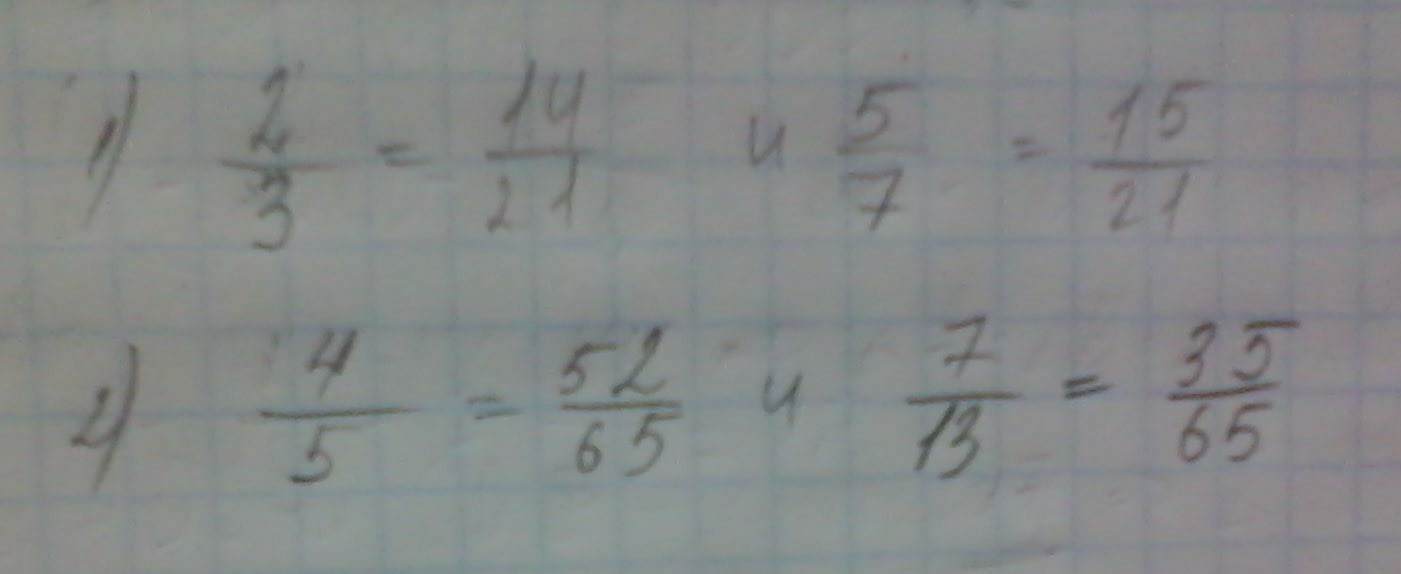 1) 2/3 = 14/21 и 5/7 = 15/21
2) 4/5 = 52/65 и 7/13 = 35/65